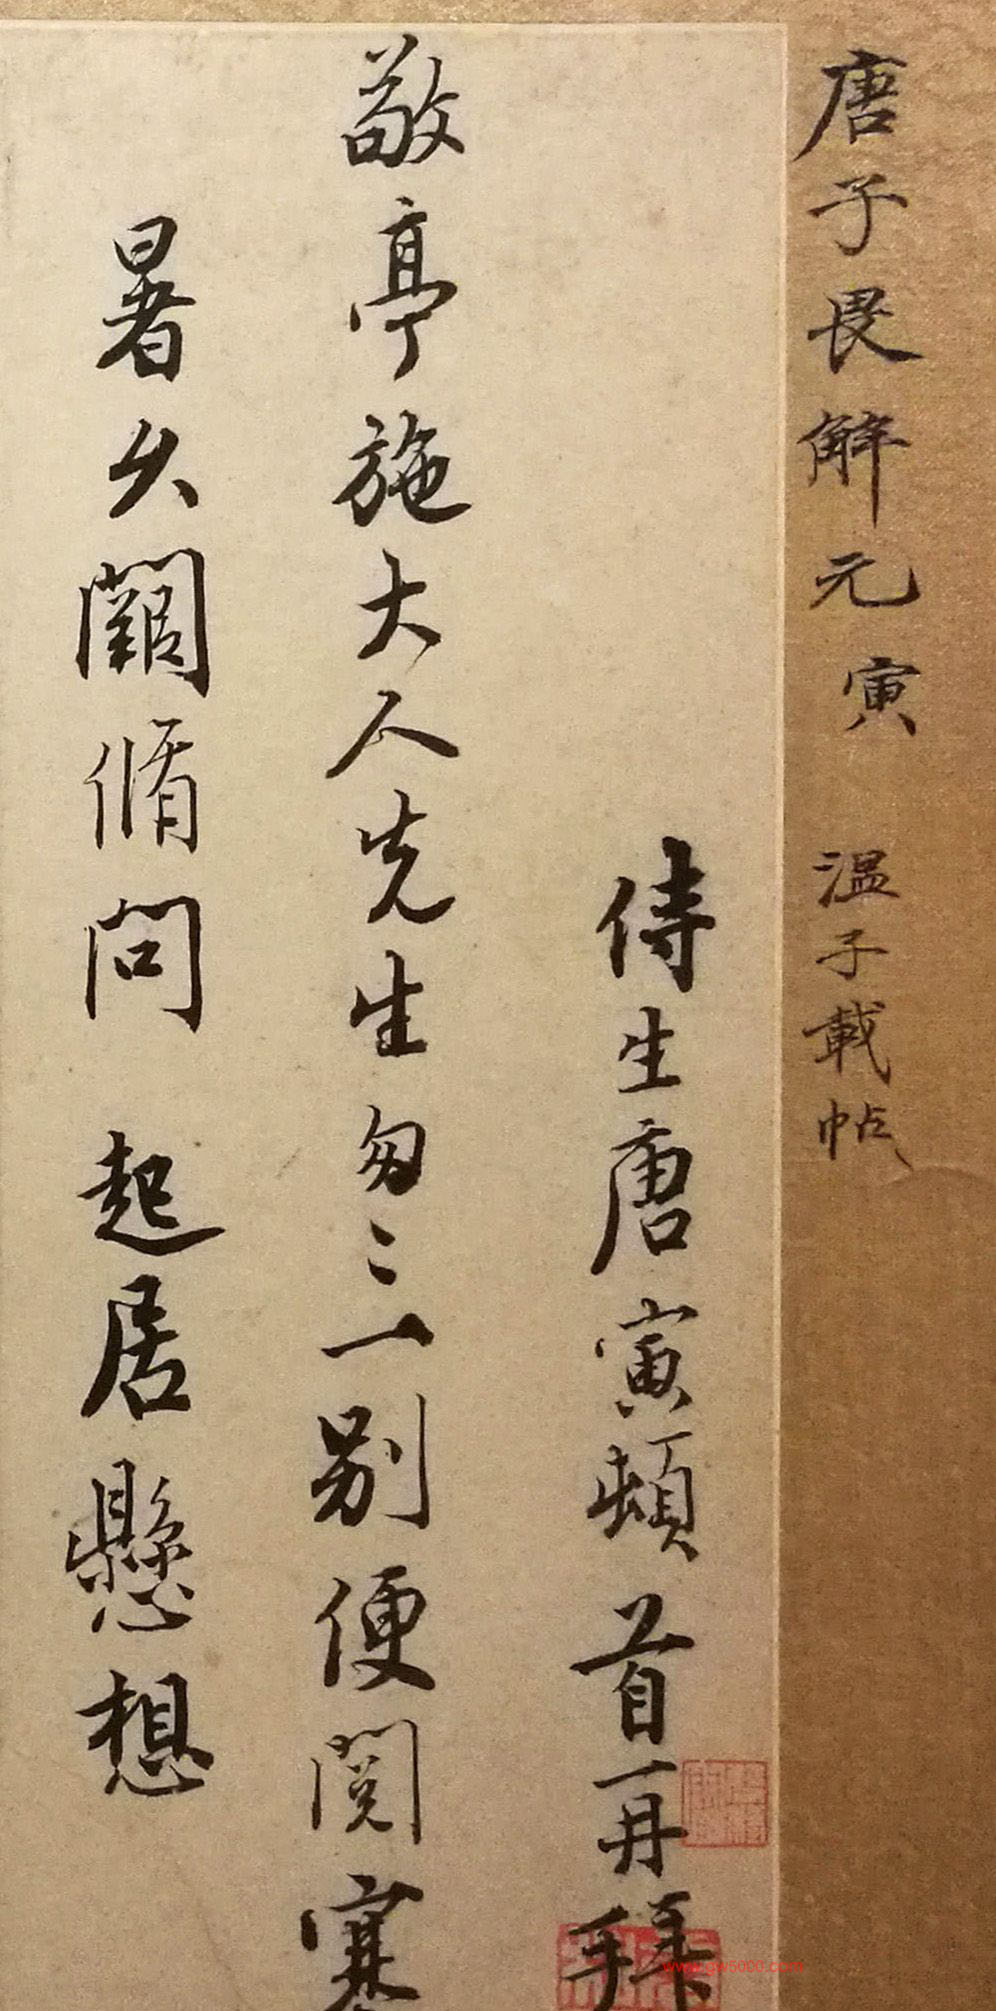 唐子畏解元寅 溫子載帖
侍生唐寅頓首再拜
敬亭施大人先生匆〻一別便閱寒
暑久闊脩問 起居懸想
www.gw5000.com